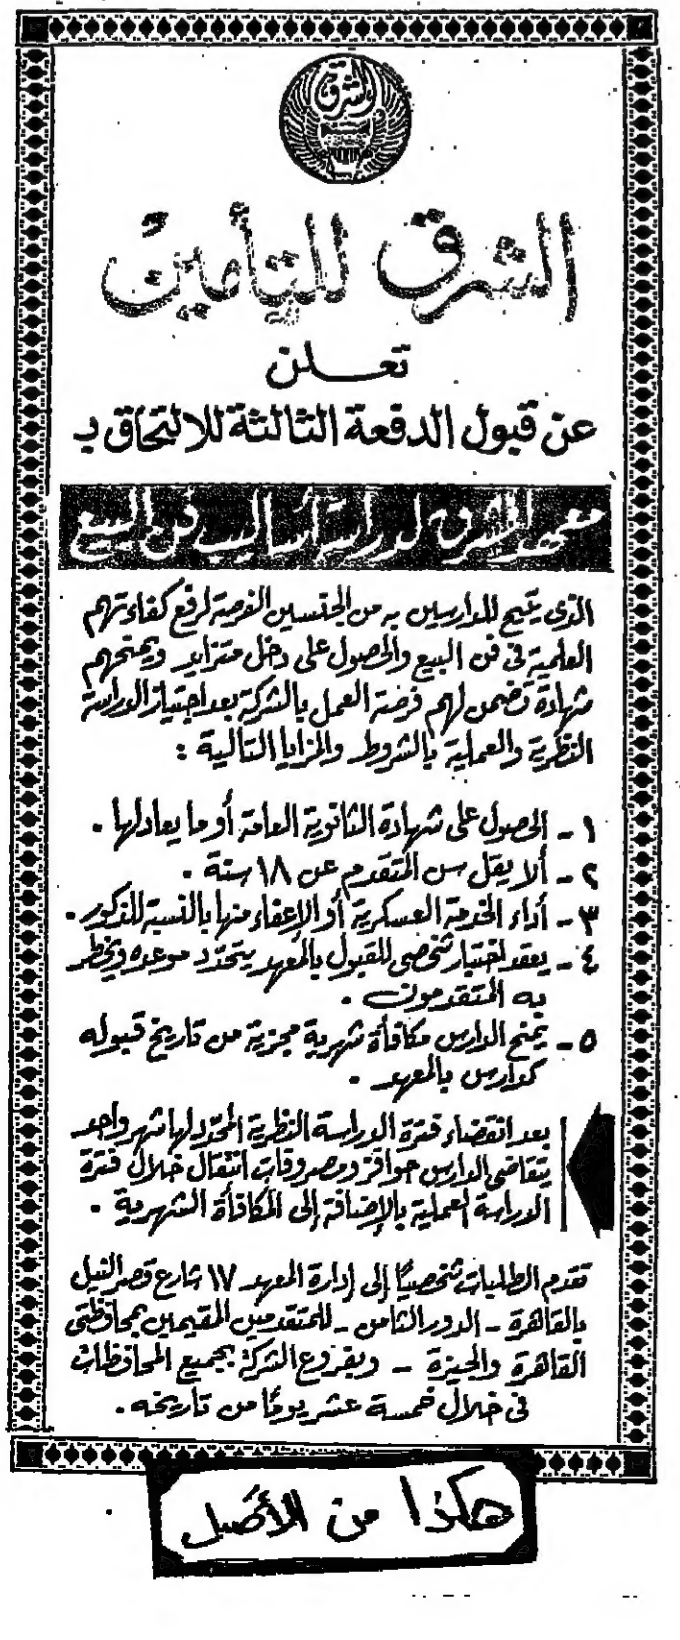 الشرق
الشرق للتأمين
تعلن
عن قبول الدفعة الثالثة للالتحاق بـ
معهد الشرق لدراسة أساليب فن البيع
الذى يتيح للدارسين به من الجنسين الفرصة لرفع كفاءتهم
العلمية فى فن البيع والحصول على دخل متزايد ويمنحهم
شهادة تضمن لهم فرصة العمل بالشركة بعد اجتياز الدراسة
النظرية والعملية بالشروط والمزايا التالية :
١ - الحصول على شهادة الثانوية العامة أو ما يعادلها .
٢ - ألا يقل سن المتقدم عن ١٨ سنة .
٣ - أداء الخدمة العسكرية أو الإعفاء منها بالنسبة للذكور .
٤ - يعقد اختبار شخصى للقبول بالمعهد يتحدد موعده ويخطر
به المتقدمون .
٥ - يمنح الدارس مكافأة شهرية مجزية من تاريخ قبوله
كدارس بالمعهد .
بعد انقضاء فترة الدراسة النظرية المحدد لها شهر واحد
يتقاضى الدارس حوافز ومصروفات انتقال خلال فترة
الدراسة العملية بالإضافة إلى المكافأة الشهرية .
تقدم الطلبات شخصياً إلى إدارة المعهد ١٧ شارع قصر النيل
بالقاهرة - الدور الثامن - للمتقدمين المقيمين بمحافظتى
القاهرة والجيزة - وبفروع الشركة بجميع المحافظات
فى خلال خمسة عشر يوماً من تاريخه .
هكذا من الأصل